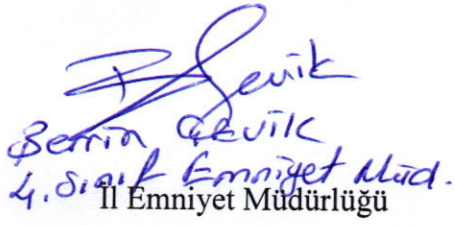 B Çevik
Berrin ÇEVİK
4. Sınıf Emniyet Müd.
İl Emniyet Müdürlüğü